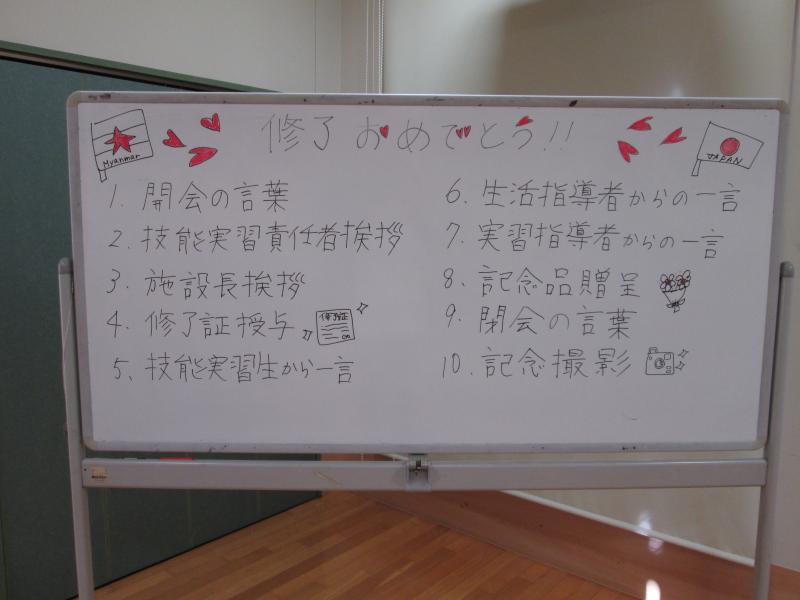 修了おめでとう!!
Myanmar
JAPAN
1. 開会の言葉
2. 技能実習責任者挨拶
3. 施設長挨拶
4. 修了証授与
修了証
5、技能実習生から一言
6. 生活指導者からの一言
7. 実習指導者からの一言
8. 記念品贈呈
9. 閉会の言葉
10. 記念撮影